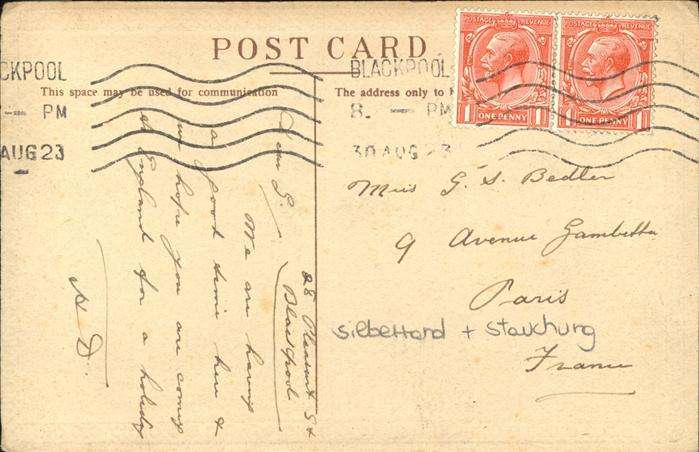 POST CARD
This space may be used for communication
The address only to
CKPOOL
PM
AUG 23
BLACKPOOL
8. PM
30 AUG 23
POSTAGE REVENUE
1 ONE PENNY 1
POSTAGE REVENUE
1 ONE PENNY 1
28 Pleasant St
Blackpool
Dear G.
We are having
a good time here &
we hope you are coming
to England for a holiday
H. D.
Miss G. S. Bedler
9 Avenue Gambetta
Paris
Silberrand + Stauchung
France